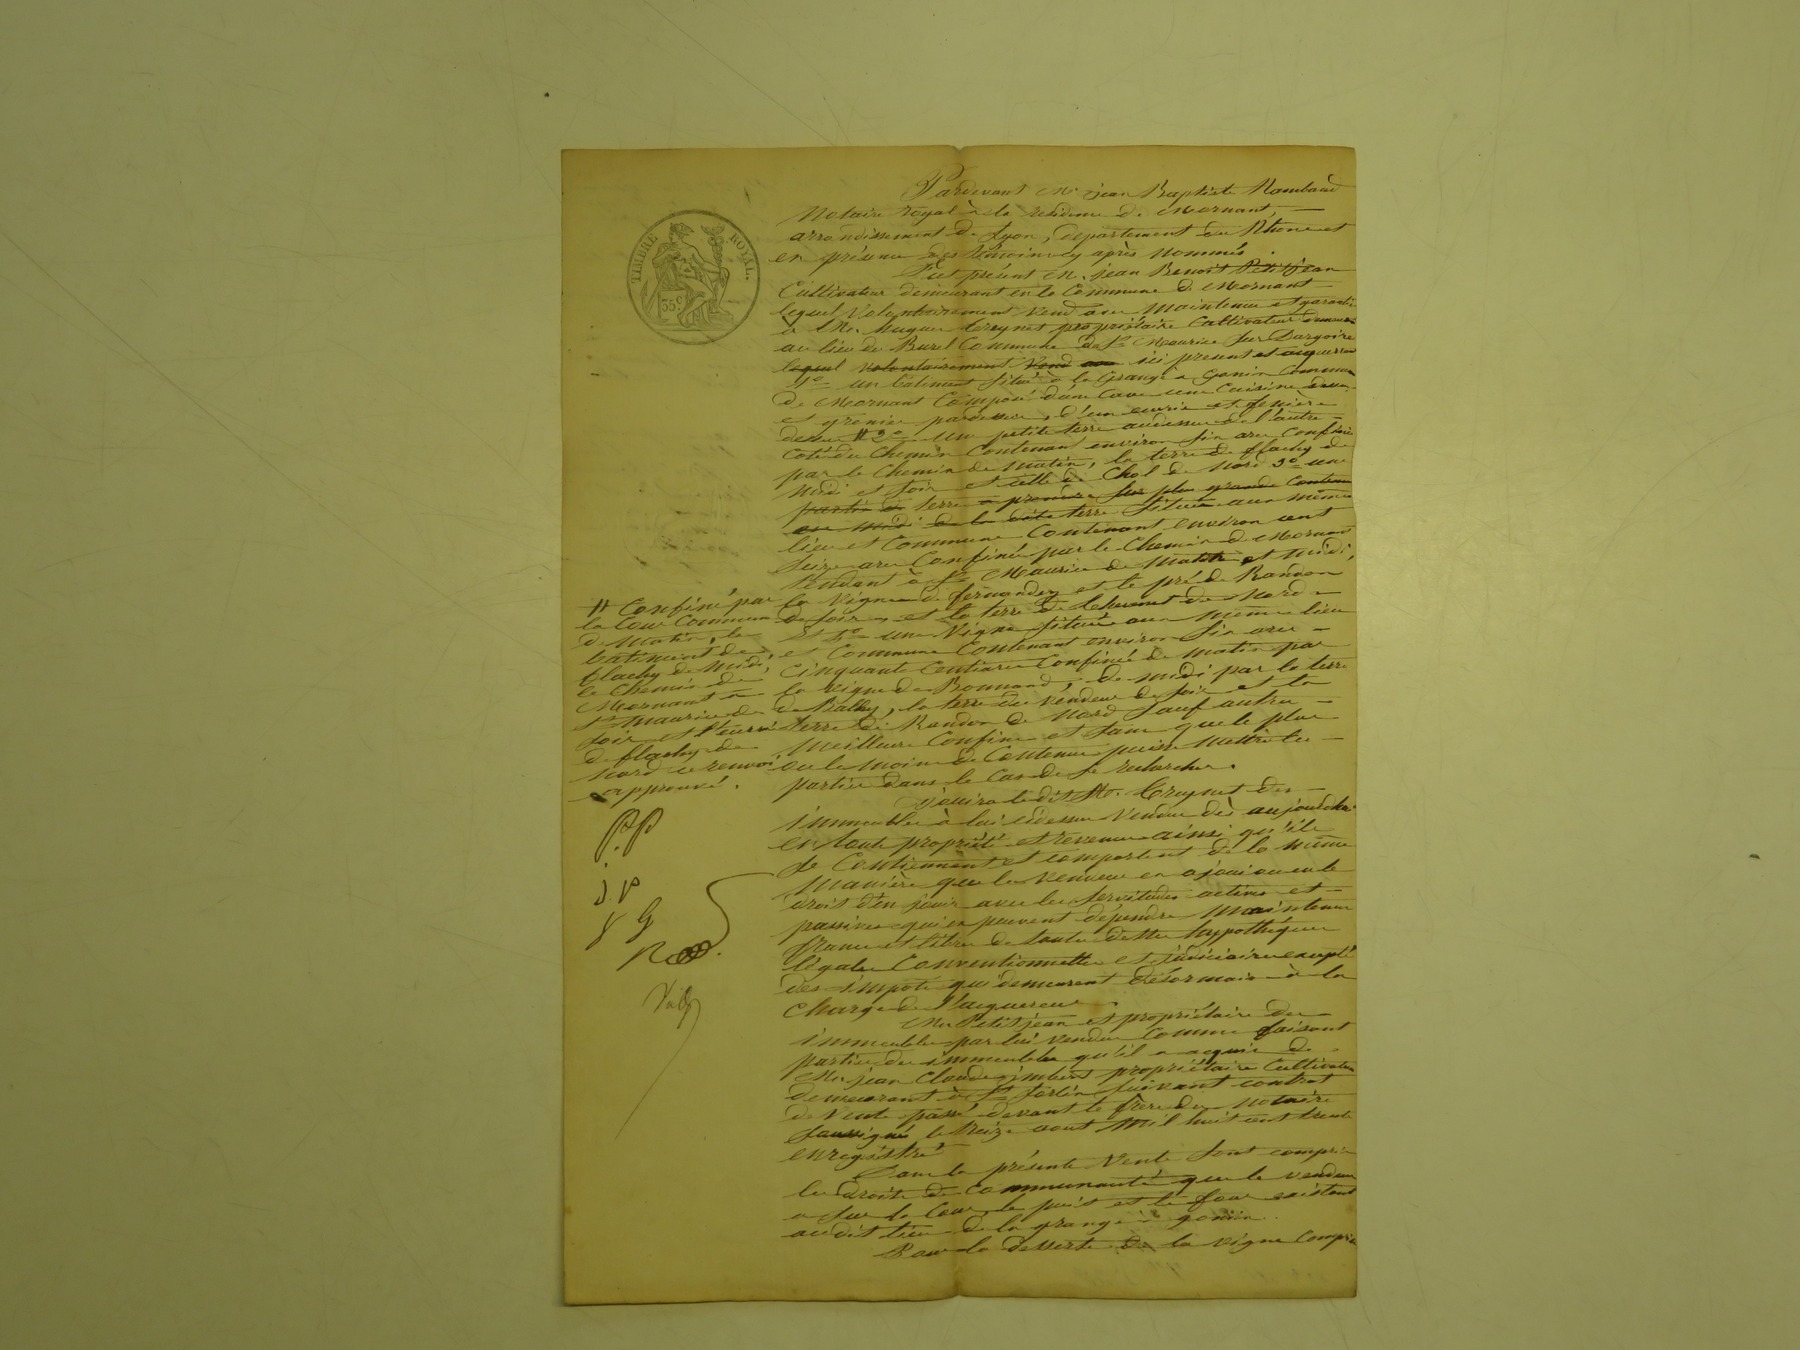 TIMBRE ROYAL.
35 c
Pardevant Me jean Baptiste Rambaud
Notaire royal à la residence de Mornant,
arrondissement de Lyon, departement du Rhône et
en présence des témoins cy après nommés
Fut présent M. jean Benoit Petitjean
Cultivateur demeurant en la Commune de Mornant
lequel Volontairement vend avec maintenue et garantie
à Mr. Creynet propriétaire Cultivateur demeurant
au lieu du Burel Commune de St Maurice sur Dargoire
lequel volontairement Vend avec ici present et acquereur
1o un bâtiment situé à la Grange à Gonin Commune
de Mornant Composé d'une Cave une Cuisine
et grenier pardessus, d'un ecurie et feniere
dessus # 2o une petite terre audessus de l'autre
coté du Chemin Contenant environ six ares Confinée
par le Chemin de matin, la terre de flachy de
midi et soir et celle de Chol de Nord 3o une
partie de terre à prendre sur plus grande Contenue
au midi de la dite terre située aux mêmes
lieu et Commune Contenant environ cent
seize ares Confinée par le Chemin de Mornant
tendant à St Maurice de Matin et midi,
la Vigne de et le pré de Randon
de soir et la terre de de Nord
Et 4o une Vigne située aux mêmes lieu
et Commune Contenant environ six ares
cinquante Centiares Confinée de matin par
la vigne de Bonnand, de midi par la terre
de Balley, la terre du Vendeur de soir et la
terre de Randon de Nord sauf autres
meilleurs Confins et sans que le plus
ou le moins de Contenue puisse mettre les
parties dans le Cas de se rechercher.
# Confiné par
la Cour Commune
de Matin, le
batiment de
flachy de Midi,
le chemin de
Mornant à
St Maurice de
soir et l'ecurie
de flachy de
Nord ce renvoi
approuvé.
P.P
J.P
G
Jouira ledit Mr. Creynet des
immeubles à lui cidessus Vendus dès aujourd'hui
en toute propriété et revenus ainsi qu'ils
se Contiennent et comportent de la même
manière que le vendeur en a joui ou eu le
droit d'en jouir avec les servitudes actives et
passives qui en peuvent dépendre maintenus
francs et libres de toutes dettes hyppothèques
légales Conventionnelles et judiciaires excepté
des impôts qui demeurent désormais à la
charge de l'acquereur
Mr Petitjean est propriétaire des
immeubles par lui vendus Comme faisant
partie des immeubles qu'il a acquis de
Mr jean Claude imbert propriétaire Cultivateur
demeurant à St Sorlin suivant contrat
de Vente passé devant le frère du Notaire
soussigné le treize aout Mil huit cent trente
enregistré
Dans la présente Vente sont compris
les droits de Communauté que le vendeur
a sur la Cour, le puits et le four existant
audit lieu de la grange à gonin.
Pour la desserte de la vigne Comprise